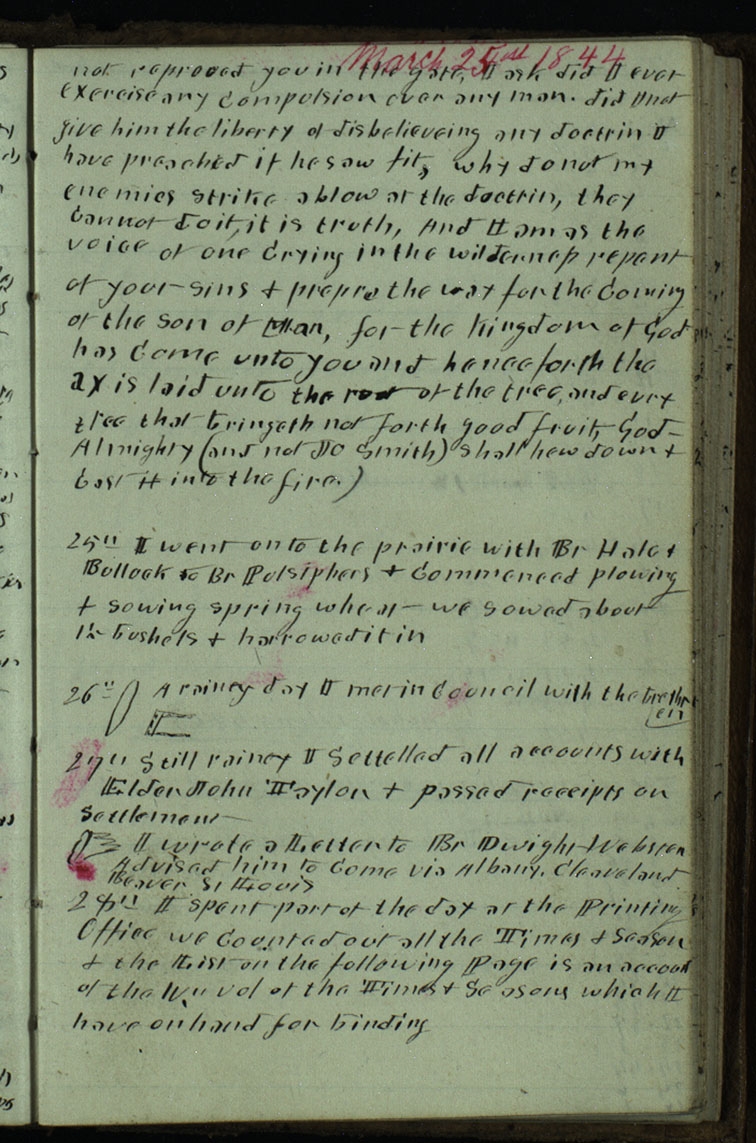 March 25th 1844
not reprooved you in the gate, I ask did I ever
exercise any compulsion over any man. did I not
give him the liberty of disbelieveing any doctrin I
have preached if he saw fit, why do not my
enemies strike a blow at the doctrin, they
cannot do it, it is truth, And I am as the
voice of one crying in the wilderness repent
of your sins & prepre the way for the coming
of the son of Man, for the kingdom of God
has come unto you and henceforth the
ax is laid unto the root of the tree, and evry
tree that bringeth not forth good fruit, God
Almighty (and not Jo Smith) shall hew down &
cast it into the fire.)
25th I went onto the prairie with Br Hale &
Bullock to Br Pulsiphers & commenced plowing
& sowing spring wheat we sowed about
1½ bushels & harrowed it in
26th A rainey day I met in Council with the brethr
en
27th Still rainey I Settelled all accounts with
Elder John Taylor & passed receipts on
Settlement
I wrote a Letter to Br Dwight Webster
Advised him to come via Albany. Cleaveland
Beaver St Louis
28th I spent part of the day at the Printing
Office we counted out all the Times & Season
& the List on the following Page is an account
of the vol of the Times & Seasons which I
have on hand for binding